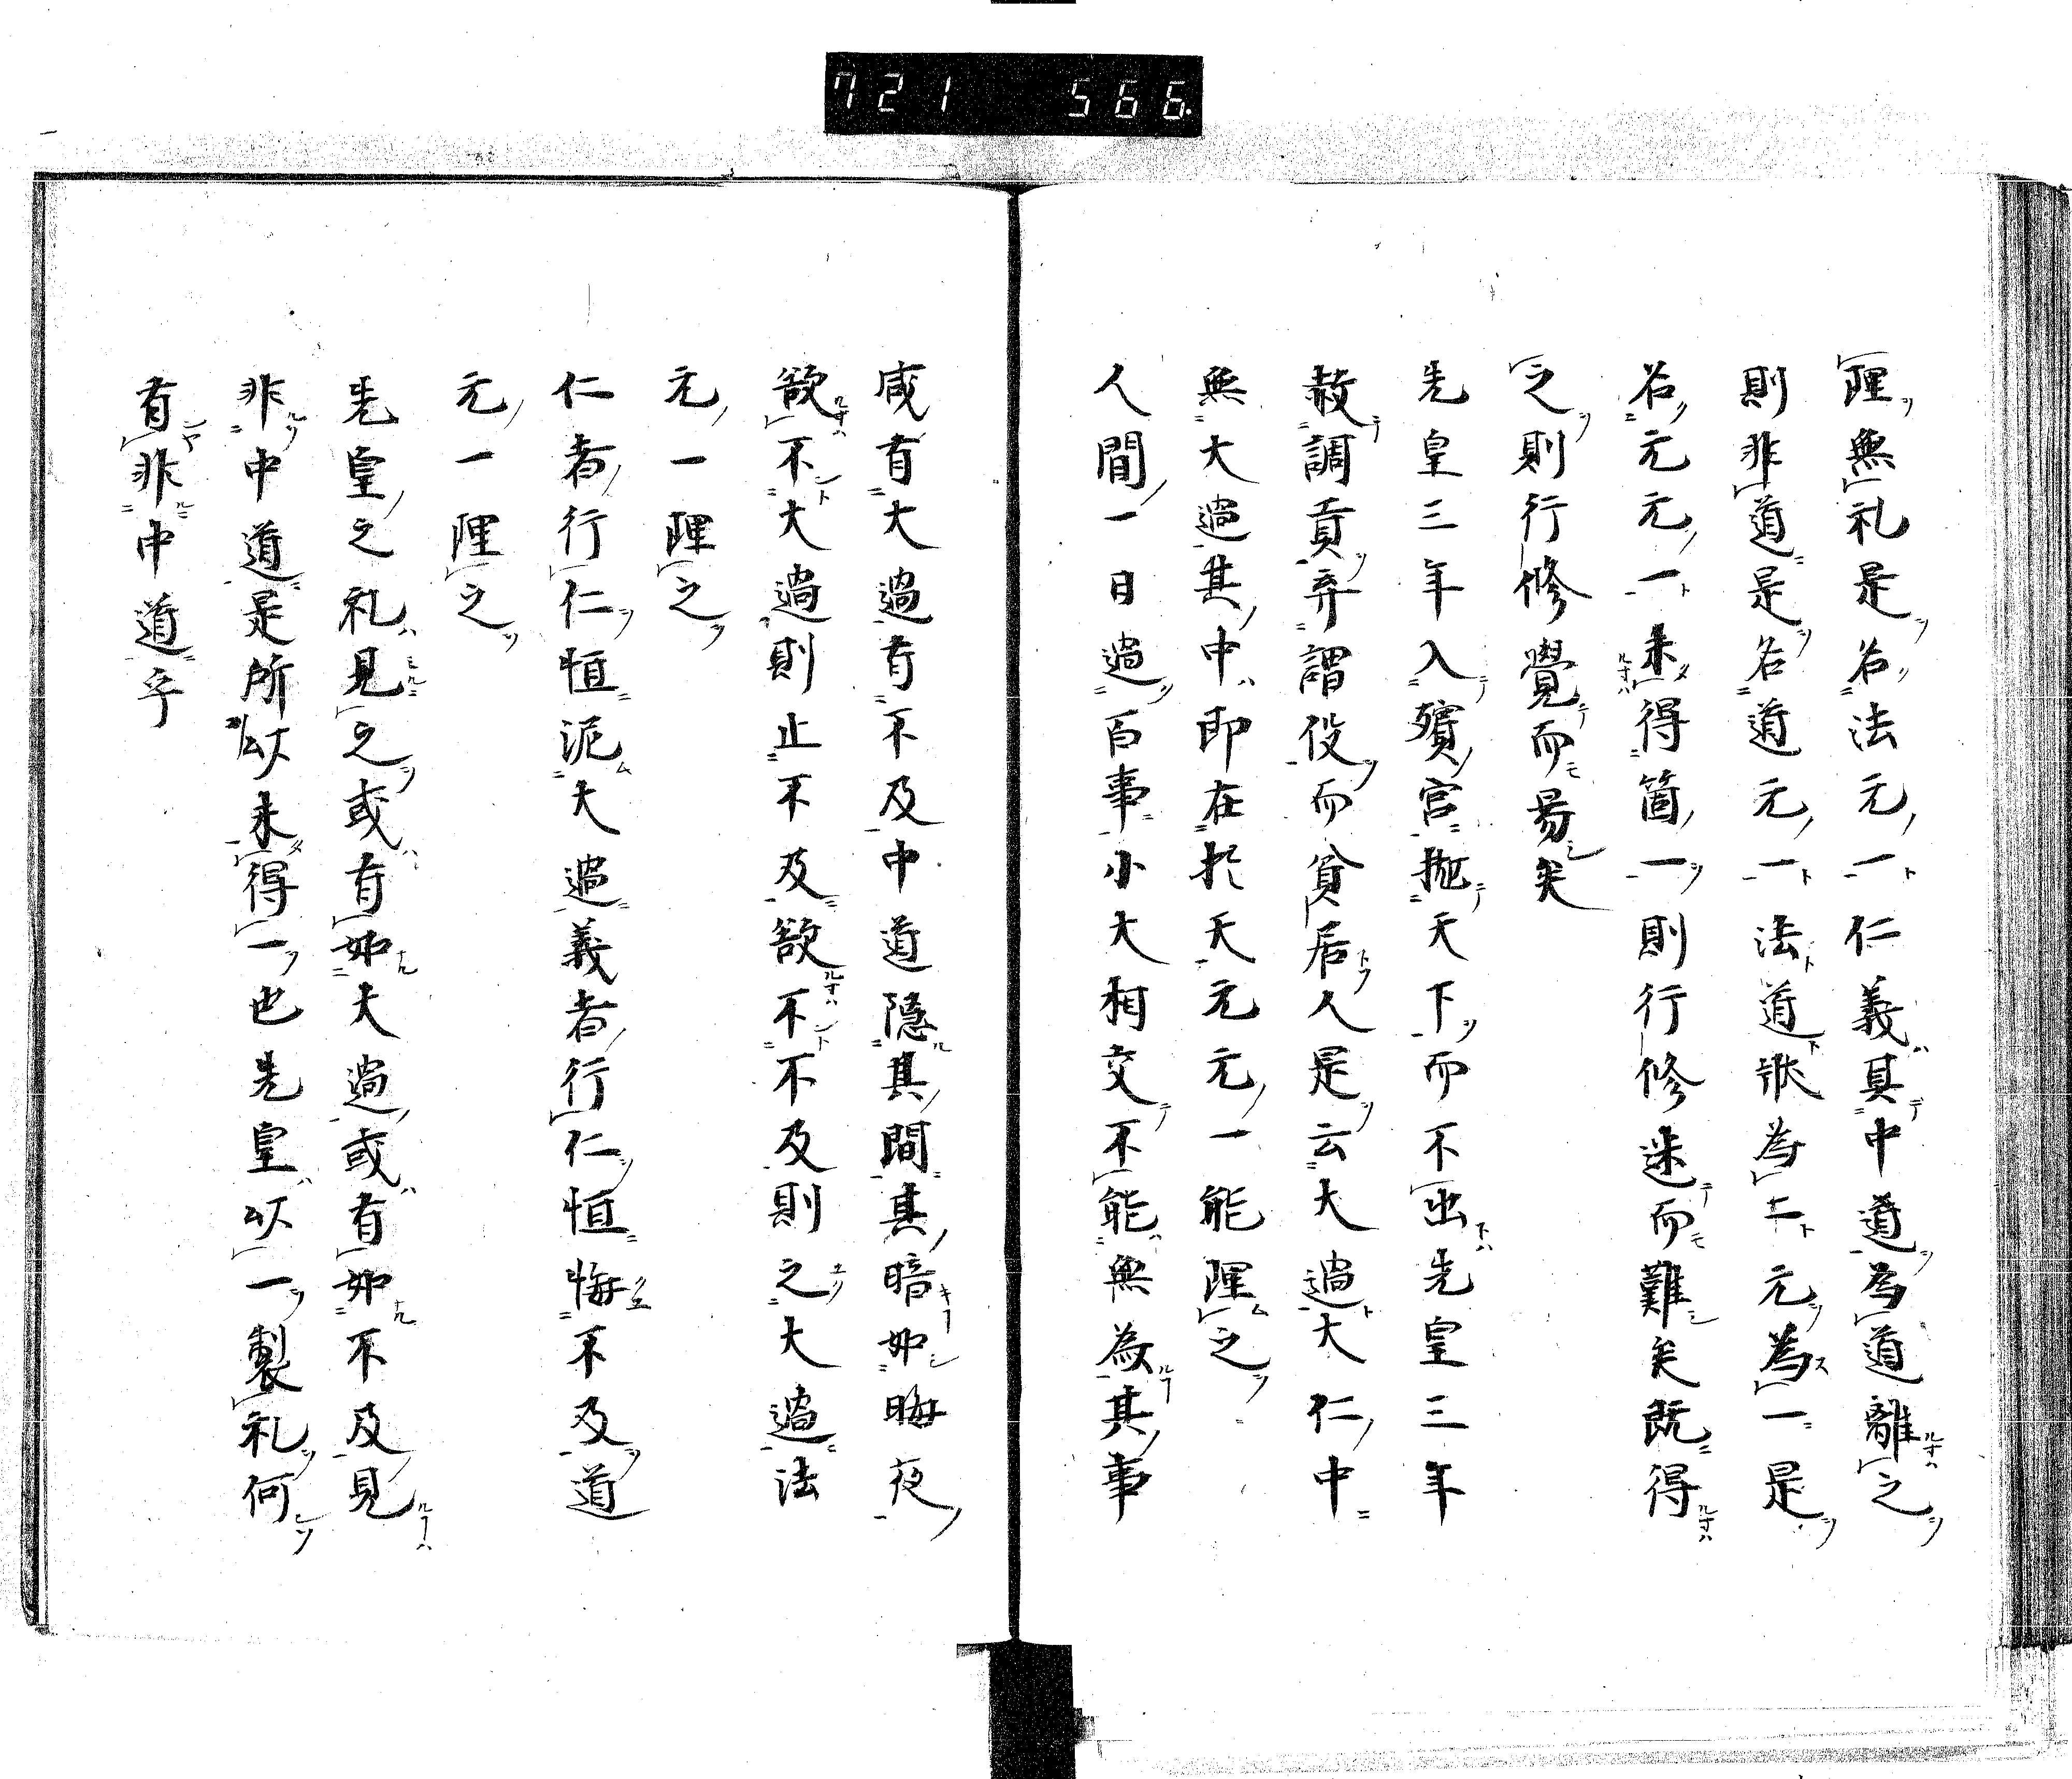 721 566
理無礼是名法元一仁義其中道為道離之
則非道是名道元一法道㸃為二元為一是
名元元一未得箇一則行修迷而難矣既得
之則行修覺而易矣
先皇三年入殯宮抛天下而不出先皇三年
赦調貢弃謂役而貧居人是云大過大仁中
無大過其中即在於天元元一能理之
人間一日過百事小大相交不能無為其事
咸有大過有不及中道隱其間其暗如晦夜
欲不大過則止不及欲不不及則之大過法
元一理之
仁者行仁恒泥大過義者行仁恒悔不及道
元一理之
先皇之礼見之或有如大過或有如不及見
非中道是所以未得一也先皇以一製礼何
有非中道乎